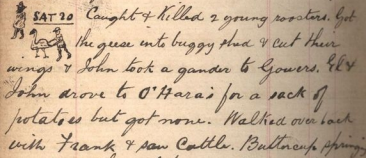 SAT 20 Caught & Killed 2 young roosters. Got
the geese into buggy shed & cut their
wings & John took a gander to Gowers. El &
John drove to O'Hara's for a sack of
potatoes but got none. Walked over back
with Frank & saw Cattle. Buttercup springing